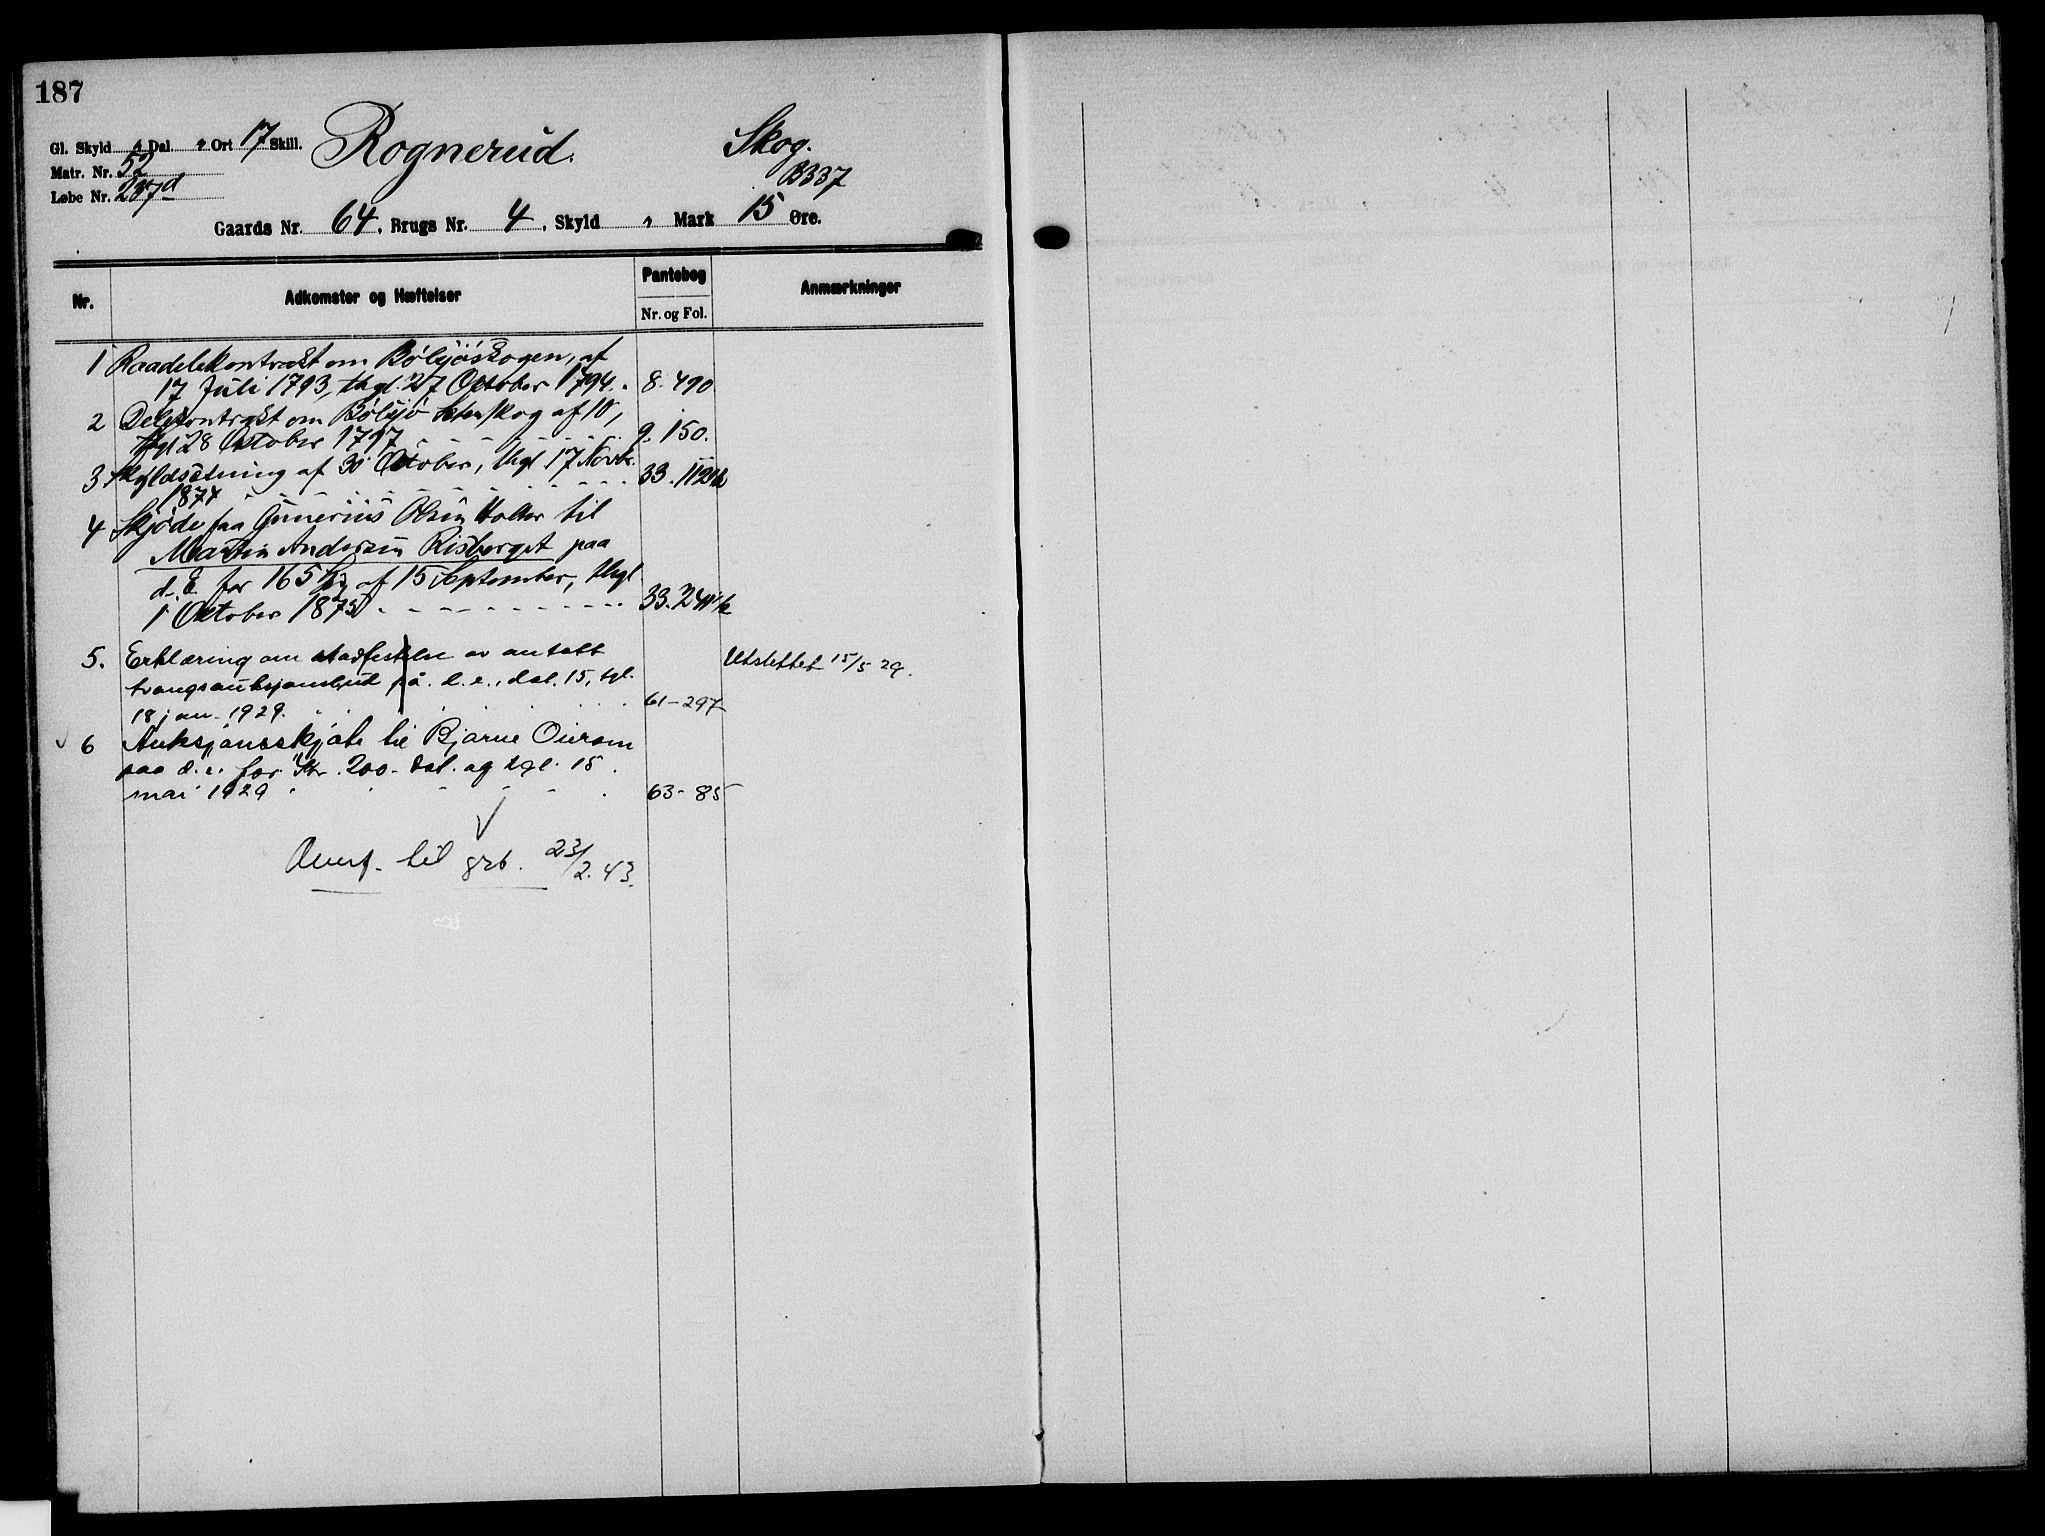 187
Gl. Skyld „ Dal. „ Ort 17 Skill. Rognerud. Skog.
Matr. Nr. 52 B337
Løbe Nr. 237d
Gaards Nr. 64, Brugs Nr. 4, Skyld „ Mark 15 Øre.
Nr. Adkomster og Hæftelser Pantebog Nr. og Fol. Anmærkninger
1 Raadelekontrakt om Bölsjöskogen, af
17 Juli 1793, thgl. 27 October 1794. 8. 490
2 Delekontrakt om Bölsjö skog af 10,
thgl 28 October 1797 9. 150.
3 Skyldsætning af 30 October, thgl 17 Novbr.
1874 33. 112
4 Skjöde fra Gunerius Olsen Holter til
Martin Andersen Risberget paa
d. E. for 165 af 15 September, thgl
1 October 1875 33. 241
5. Erklæring om stadfestelse av antatt Utslettet 15/5 29.
tvangsauksjonsbud på d. e., dat. 15, tgl.
18 jan. 1929. 61-297
6 Auksjonsskjöte til Bjarne Ouren
paa d. e. for Kr. 200.- dat. og tgl. 15
mai 1929 63-85
Overf. til grb. 23/2. 43.